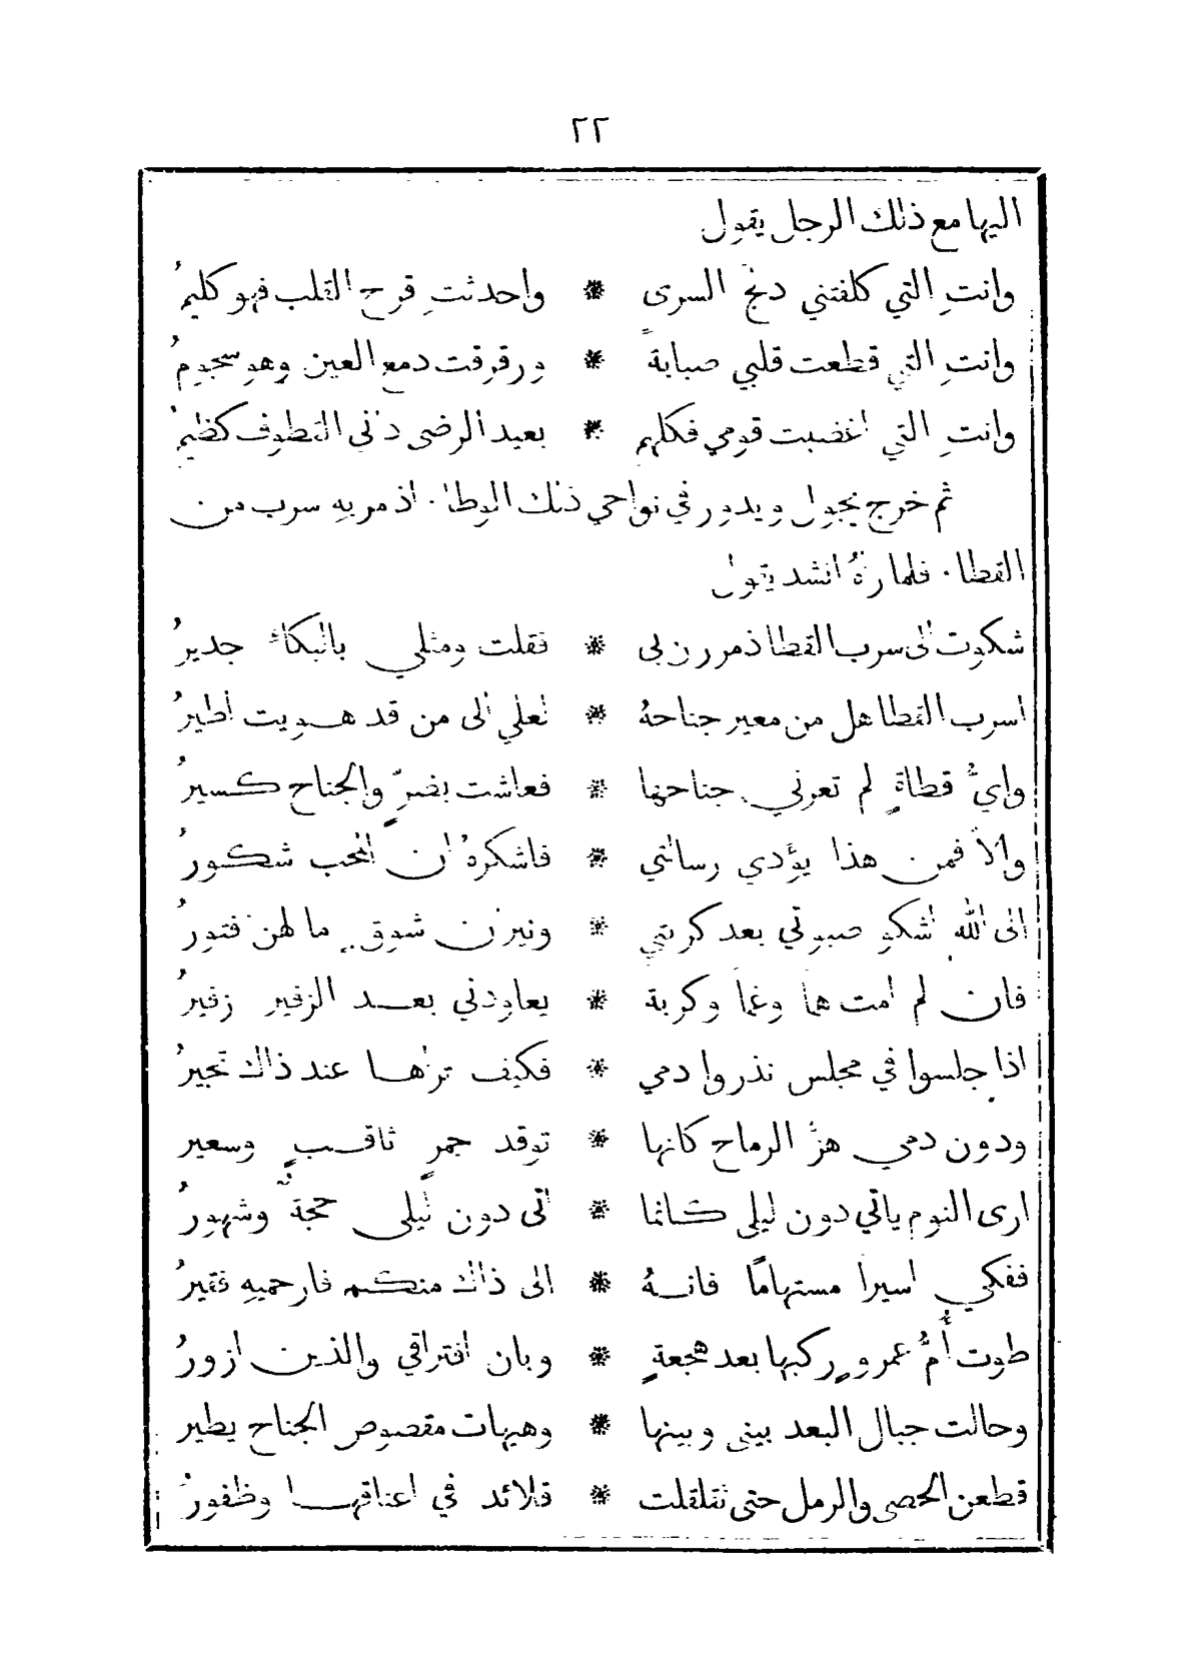 ٢٢
اليها مع ذلك الرجل يقول
وانتِ التي كلفتني دلج السرى * واحدثتِ قرح القلب فهو كليمُ
وانتِ التي قطعت قلبي صبابةً * ورقرقت دمع العين وهو سجومُ
وانتِ التي اغضبت قومي فكلهم * بعيد الرضى داني القطوف كظيمُ
ثم خرج يجول ويدور في نواحي ذلك الوطا. اذ مر بهِ سرب من
القطا. فلما رآهُ انشد يقول
شكوت الى سرب القطا اذ مررن بي * فقلت ومثلي بالبكاء جديرُ
اسرب القطا هل من معير جناحهُ * لعلي الى من قد هويت اطيرُ
وايُّ قطاةٍ لم تعرني جناحها * فعاشت بضرٍّ والجناح كسيرُ
والاَّ فمن هذا يؤدي رسالتي * فاشكرهُ ان المحب شكورُ
الى الله اشكو صبوتي بعد كربتي * ونيران شوقي ما لهن فتورُ
فان لم امت هماً وغماً وكربة * يعاودني بعد الزفير زفيرُ
اذا جلسوا في مجلس نذروا دمي * فكيف تراها عند ذاك تجيرُ
ودون دمي هزُّ الرماح كانها * توقد جمرٍ ثاقبٍ وسعير
ارى النوم ياتي دون ليلى كانما * اتى دون ليلى حجةٌ وشهورُ
ففكي اسيراً مستهاماً فانهُ * الى ذاك منكم فارحميهِ فقيرُ
طوت أُمُّ عمروٍ ركبها بعد هجعةٍ * وبان افتراقي والذين ازورُ
وحالت جبال البعد بيني وبينها * وهيهات مقصوص الجناح يطير
قطعن الحصى والرمل حتى تقلقلت * قلائد في اعناقها وظفورُ